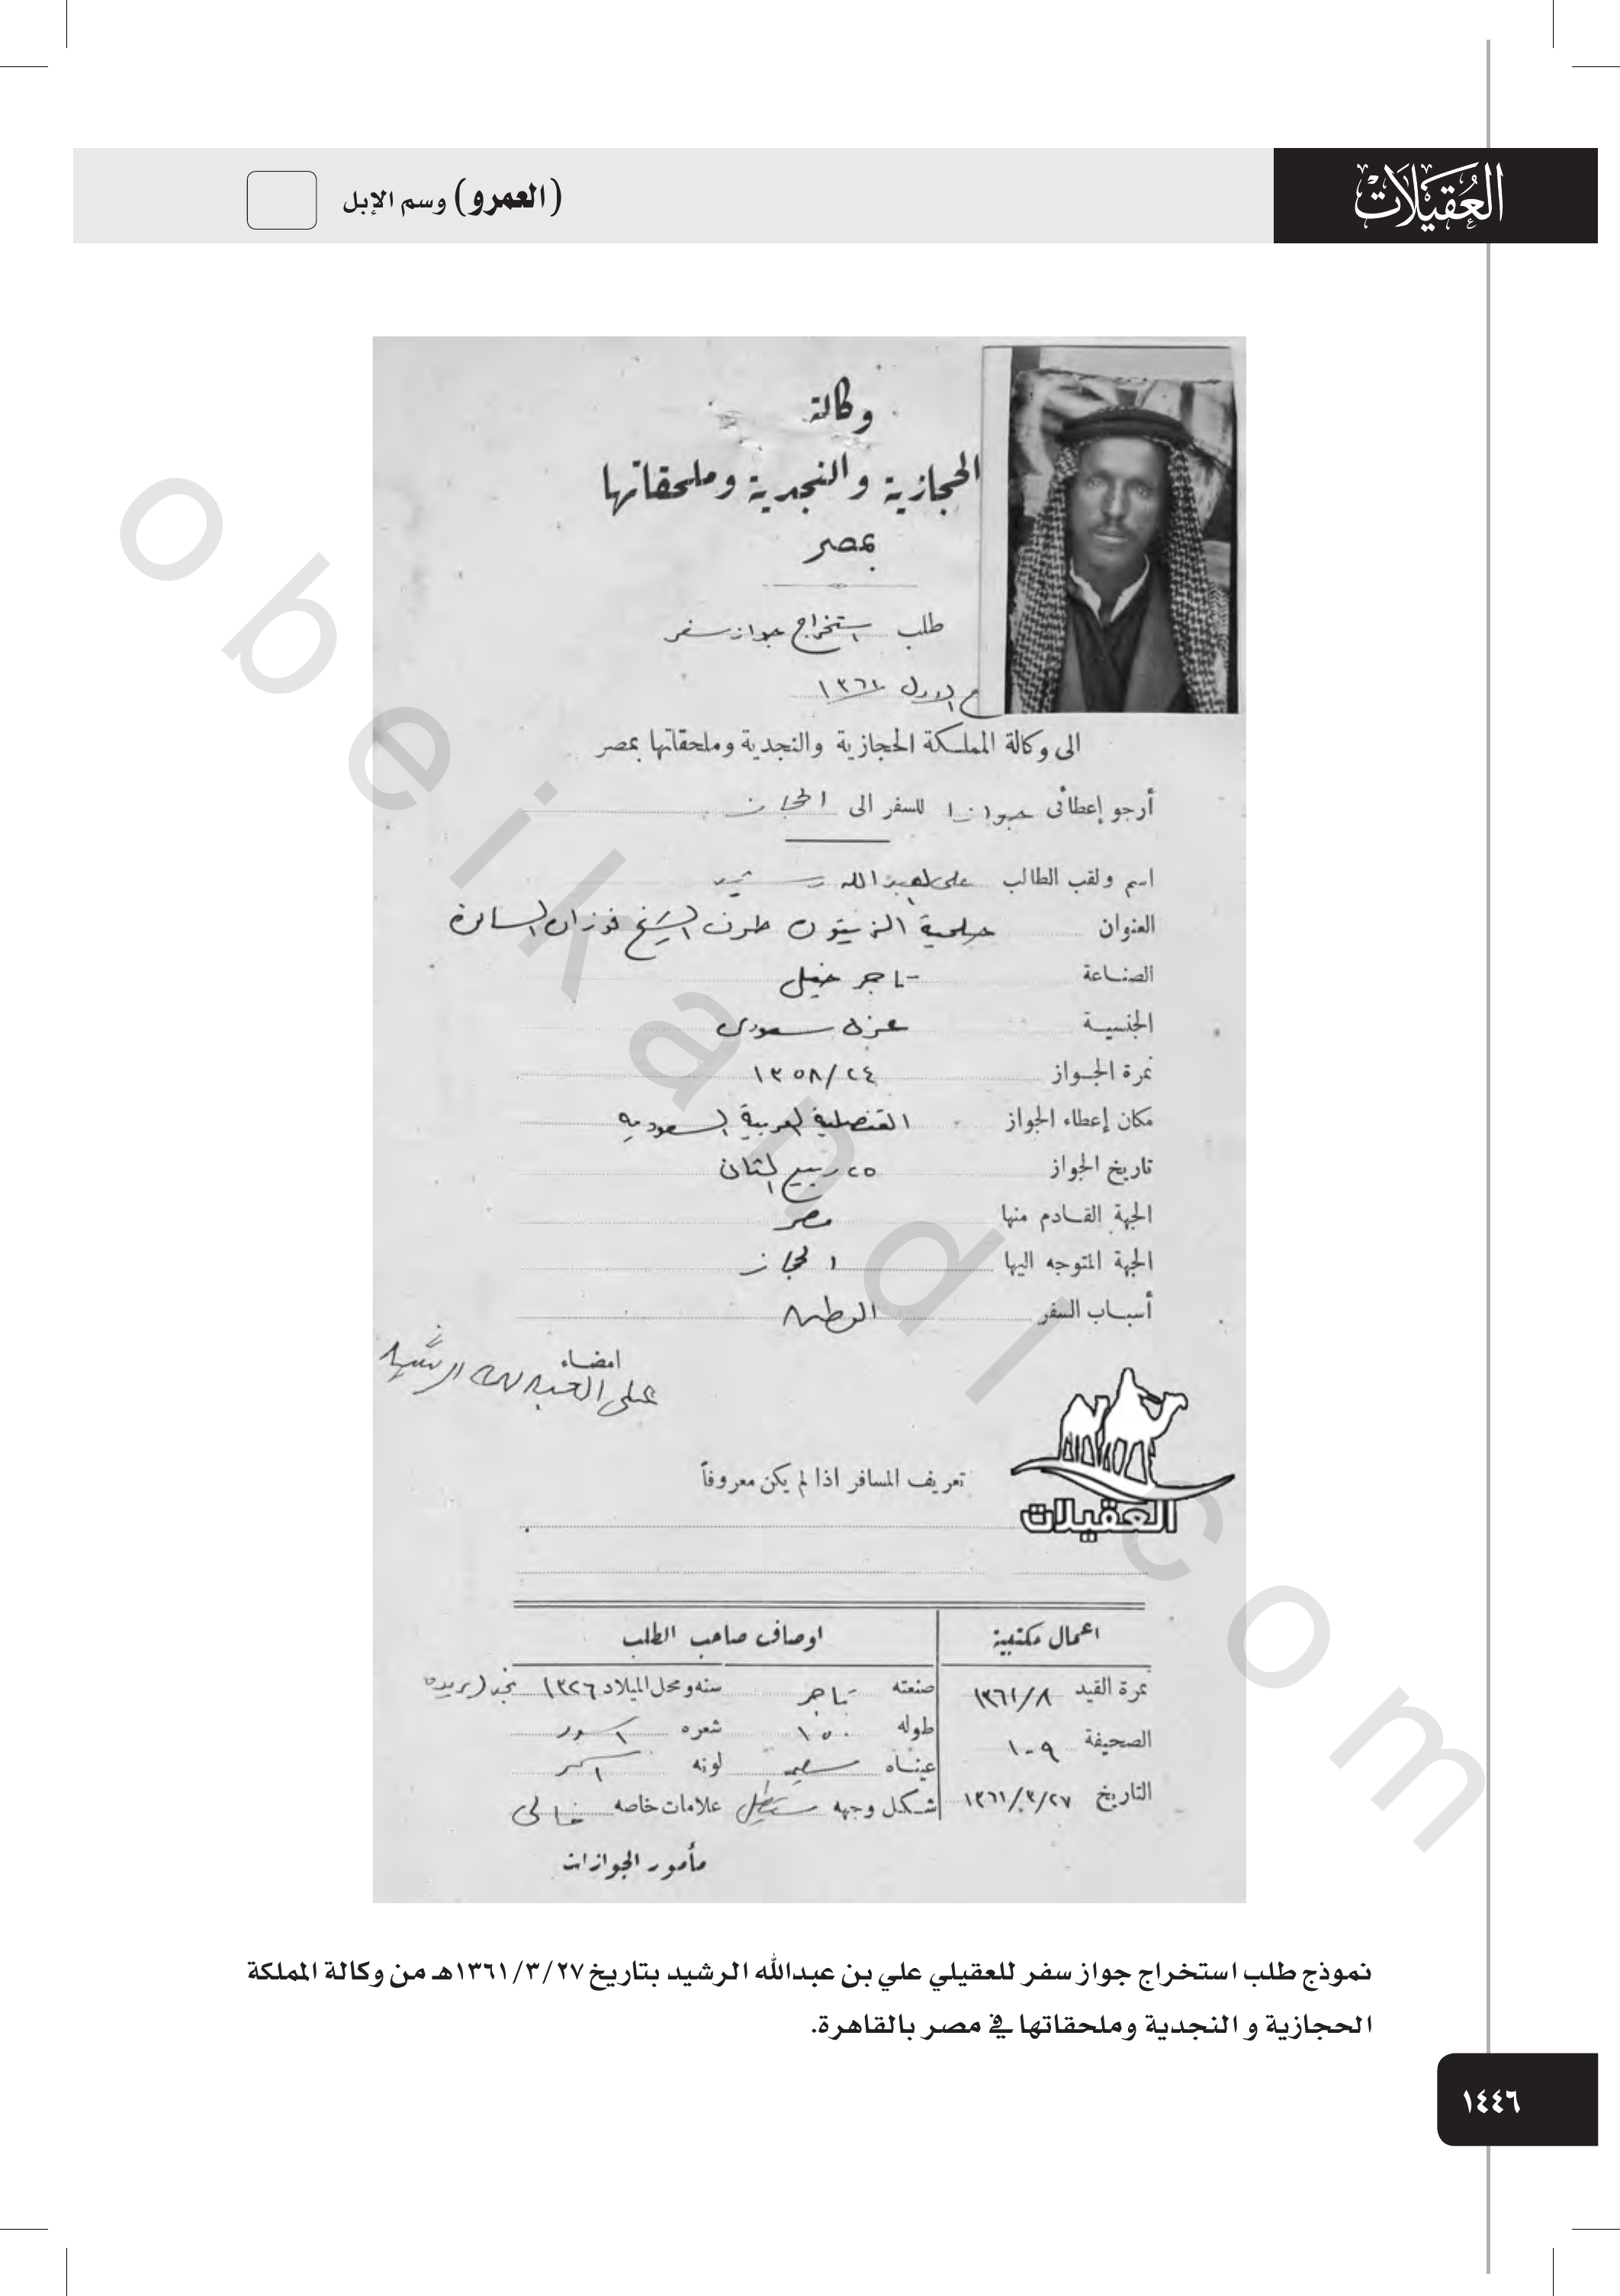 العُقَيْلَاتْ
(العمرو) وسم الإبل
وكالة
الحجازية والنجدية وملحقاتها
بمصر
طلب استخراج جواز سفر
ع الاول ١٣٦١
الى وكالة المملكة الحجازية والنجدية وملحقاتها بمصر
أرجو إعطائى جوازا للسفر الى الحجاز
اسم ولقب الطالب على العبد الله رشيد
العنوان حلمية الزيتون طرف الشيخ فوزان السابق
الصناعة تاجر خيل
الجنسية عربى سعودى
نمرة الجواز ١٣٥٨/٢٤
مكان إعطاء الجواز القنصلية العربية السعودية
تاريخ الجواز ٢٥ ربيع الثانى
الجهة القادم منها مصر
الجهة المتوجه اليها الحجاز
أسباب السفر الوطن
امضاء
على العبد الله الرشيد
العقيلات
تعريف المسافر اذا لم يكن معروفاً
اعمال مكتبية
اوصاف صاحب الطلب
نمرة القيد ١٣٦١/٨ صنعته تاجر سنه ومحل الميلاد ١٣٢٦ نجد (بريده
الصحيفة ١٠٩ طوله ١٥٠ شعره اسود
عيناه لونه اسمر
التاريخ ١٣٦١/٣/٢٧ شكل وجهه مستطيل علامات خاصه خالى
مأمور الجوازات
نموذج طلب استخراج جواز سفر للعقيلي علي بن عبدالله الرشيد بتاريخ ١٣٦١/٣/٢٧هـ من وكالة المملكة
الحجازية و النجدية وملحقاتها في مصر بالقاهرة.
١٤٤٦
obeikandl.com